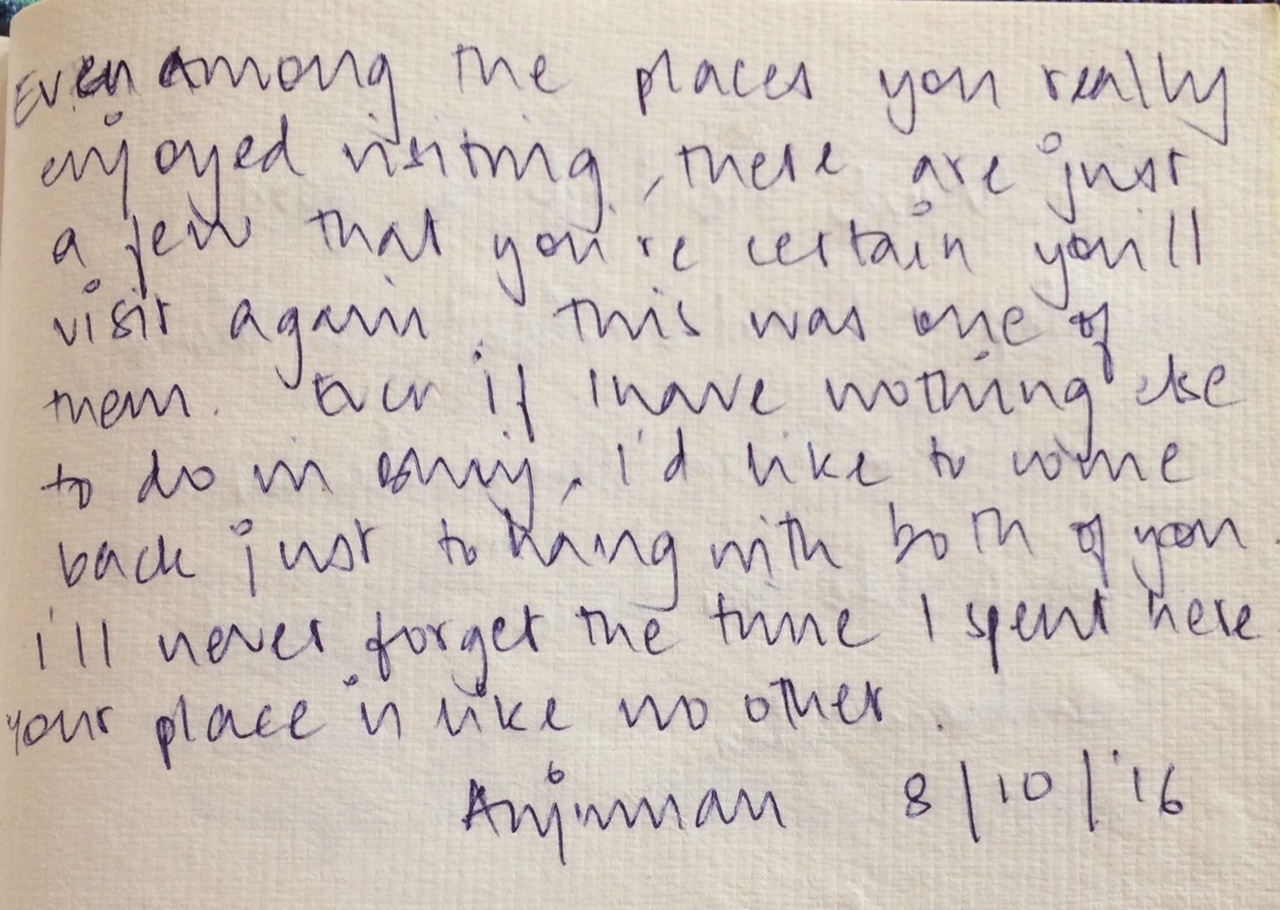 Even among the places you really
enjoyed visiting, there are just
a few that you're certain you'll
visit again. This was one of
them. Even if I have nothing else
to do in , I'd like to come
back just to hang with both of you.
I'll never forget the time I spent here
your place is like no other.
8/10/'16